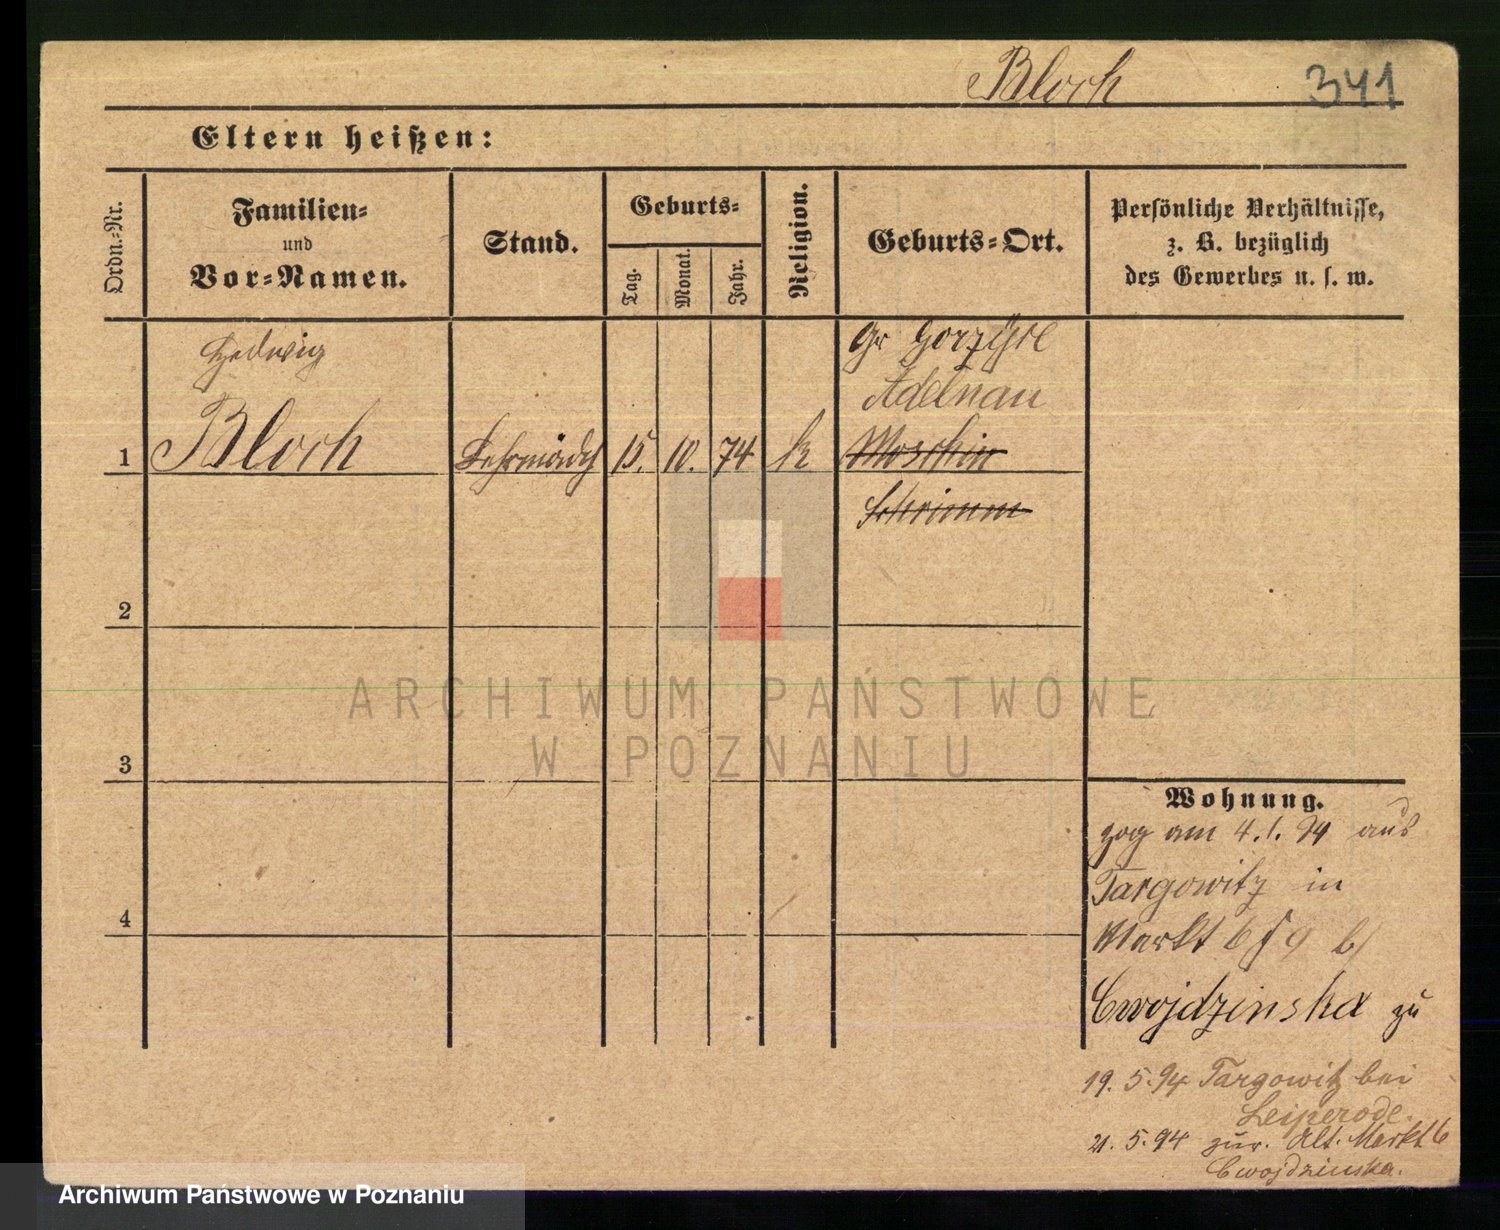 Bloch 341
Eltern heißen:
Ordn.-Nr.
Familien-
und
Vor-Namen.
Stand.
Geburts-
Tag.
Monat.
Jahr.
Religion.
Geburts-Ort.
Persönliche Verhältnisse,
z. B. bezüglich
des Gewerbes u. s. w.
Hedwig
Gr
Adelnau
1 Bloch Lehrmädch 15. 10. 74 k Moschin
Schrimm
2
3
4
Wohnung.
zog am 4. 1. 94 aus
Targowitz in
Markt 6 9 b/
Cwojdzinska zu
19. 5. 94 Targowitz bei
21. 5. 94 zur. Alt. Markt 6
Cwojdzinska.
ARCHIWUM PAŃSTWOWE
W POZNANIU
Archiwum Państwowe w Poznaniu